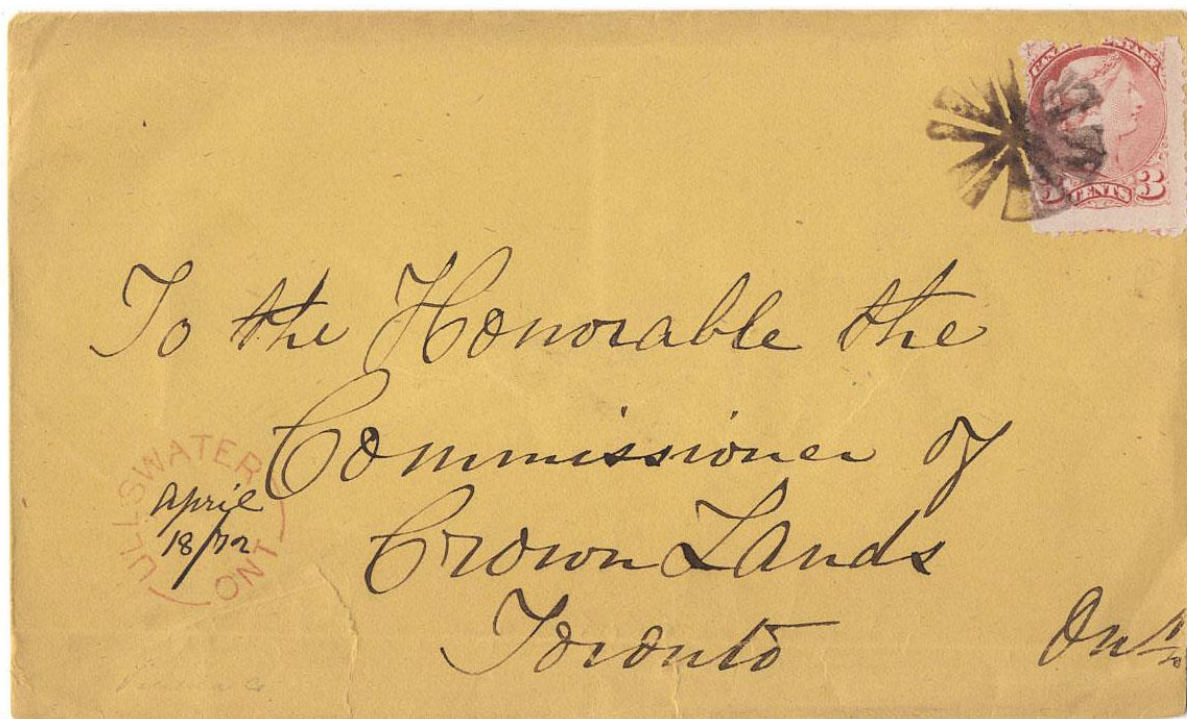 CANADA POSTAGE
3 CENTS 3
To the Honorable the
Commissioner of
Crown Lands
Toronto Onto
ULLSWATER
April
18/72
ONT